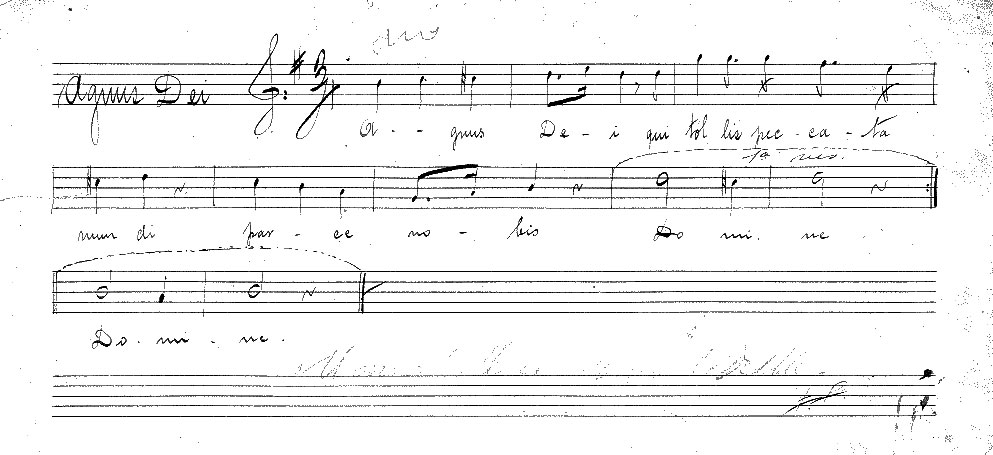 Agnus Dei
A - - gnus De - i qui tol lis pec - ca - ta
1ª ves.
mun di par - ce no - bis Do mi. ne
Do - mi - ne.